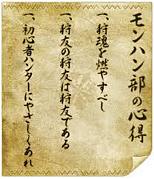 モンハン部の心得
一、狩魂を燃やすべし
一、狩友の狩友は狩友である
一、初心者ハンターにやさしくあれ